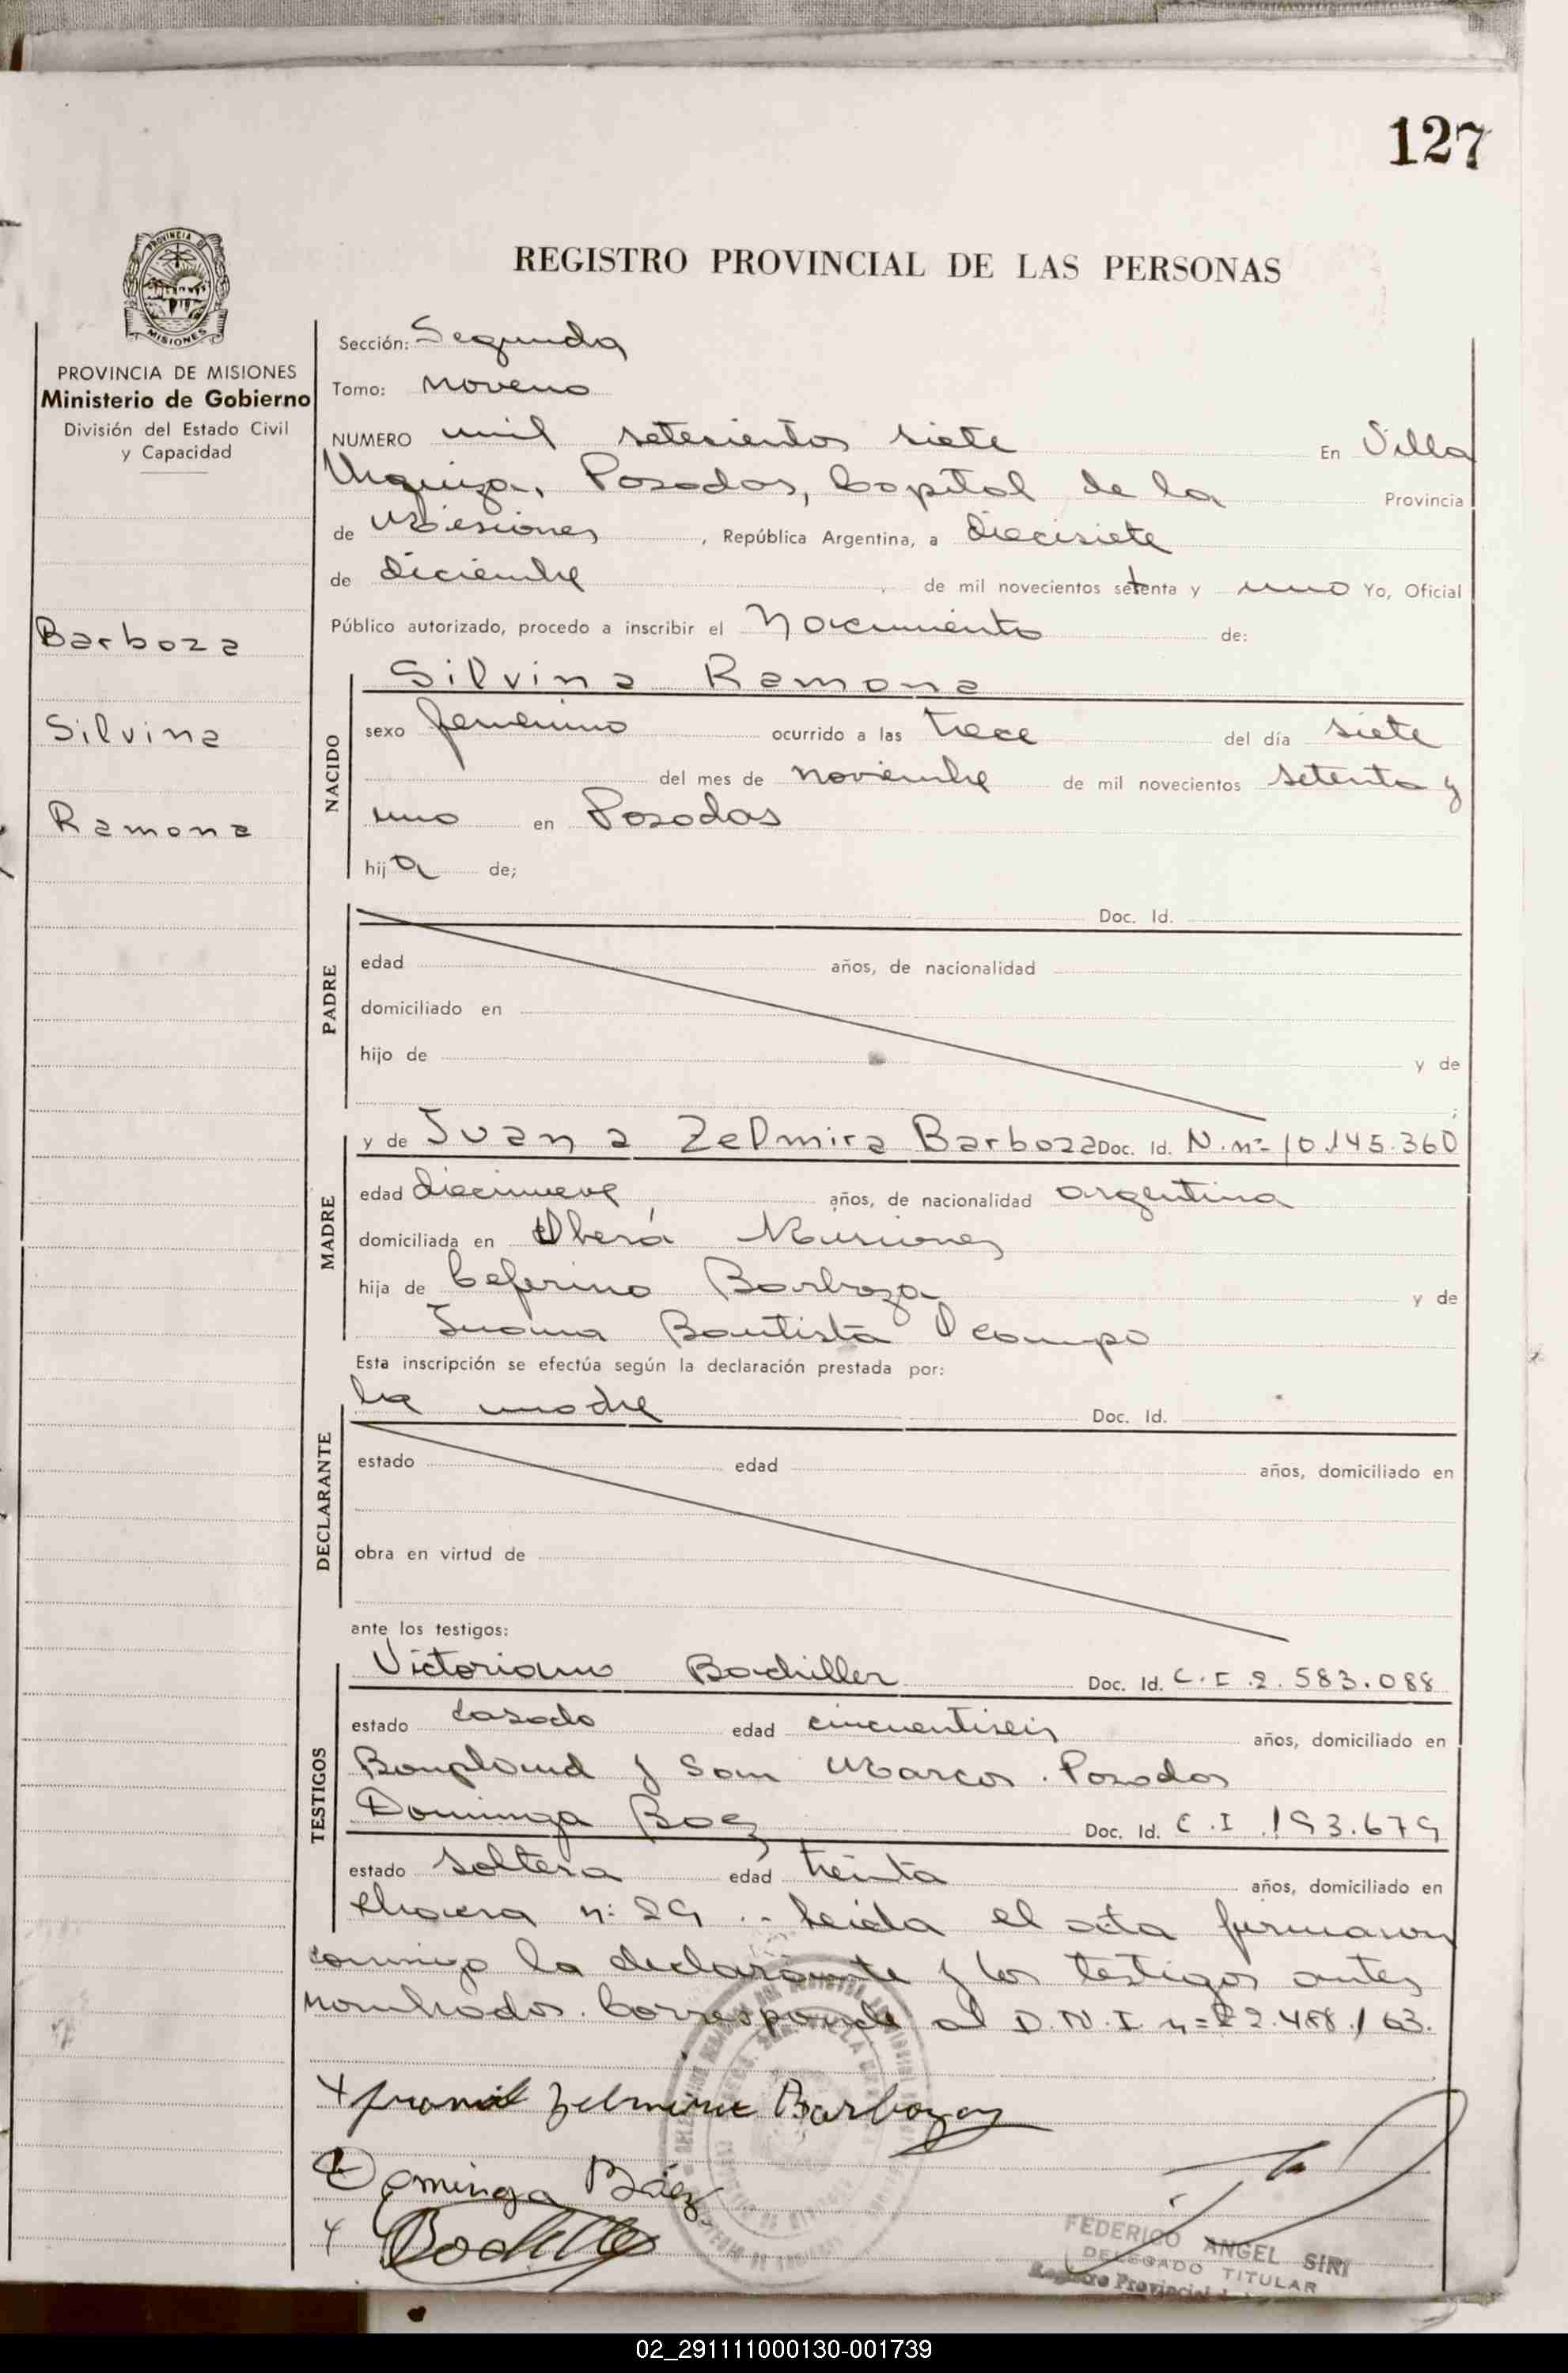 127
REGISTRO PROVINCIAL DE LAS PERSONAS
PROVINCIA DE
MISIONES
PROVINCIA DE MISIONES
Ministerio de Gobierno
División del Estado Civil
y Capacidad
Barboza
Silvina
Ramona
Sección: Segunda
Tomo: noveno
NUMERO mil setesientos siete En Villa
Urquiza, Posadas, Capital de la Provincia
de Misiones, República Argentina, a diecisiete
de diciembre de mil novecientos setenta y uno Yo, Oficial
Público autorizado, procedo a inscribir el Nacimiento de:
NACIDO
Silvina Ramona
sexo femenino ocurrido a las trece del día siete
del mes de noviembre de mil novecientos setenta y
uno en Posadas
hija de;
PADRE
Doc. Id.
edad años, de nacionalidad
domiciliado en
hijo de y de
;
MADRE
y de Juana Zelmira Barboza Doc. Id. N. nº 10.145.360
edad diecinueve años, de nacionalidad argentina
domiciliada en Oberá Misiones
hija de Ceferino Barboza y de
Juana Bautista Ocampo
Esta inscripción se efectúa según la declaración prestada por:
DECLARANTE
la madre Doc. Id.
estado edad años, domiciliado en
obra en virtud de
ante los testigos:
TESTIGOS
Victoriano Bachiller Doc. Id. C.I.2.583.088
estado casado edad cincuentiseis años, domiciliado en
Bompland y San Marcos. Posadas
Dominga Baez Doc. Id. C.I.193.679
estado soltera edad treinta años, domiciliado en
chacra n: 29.- Leida el acta firmaron
conmigo la declarante y los testigos antes
nombrados. Corresponde al D.N.I n=22.488.163.
x Juana Zelmira Barboza
Dominga Báez
x Bachiller
FEDERICO ANGEL SIRI
DELEGADO TITULAR
Registro Provincial
02_291111000130-001739